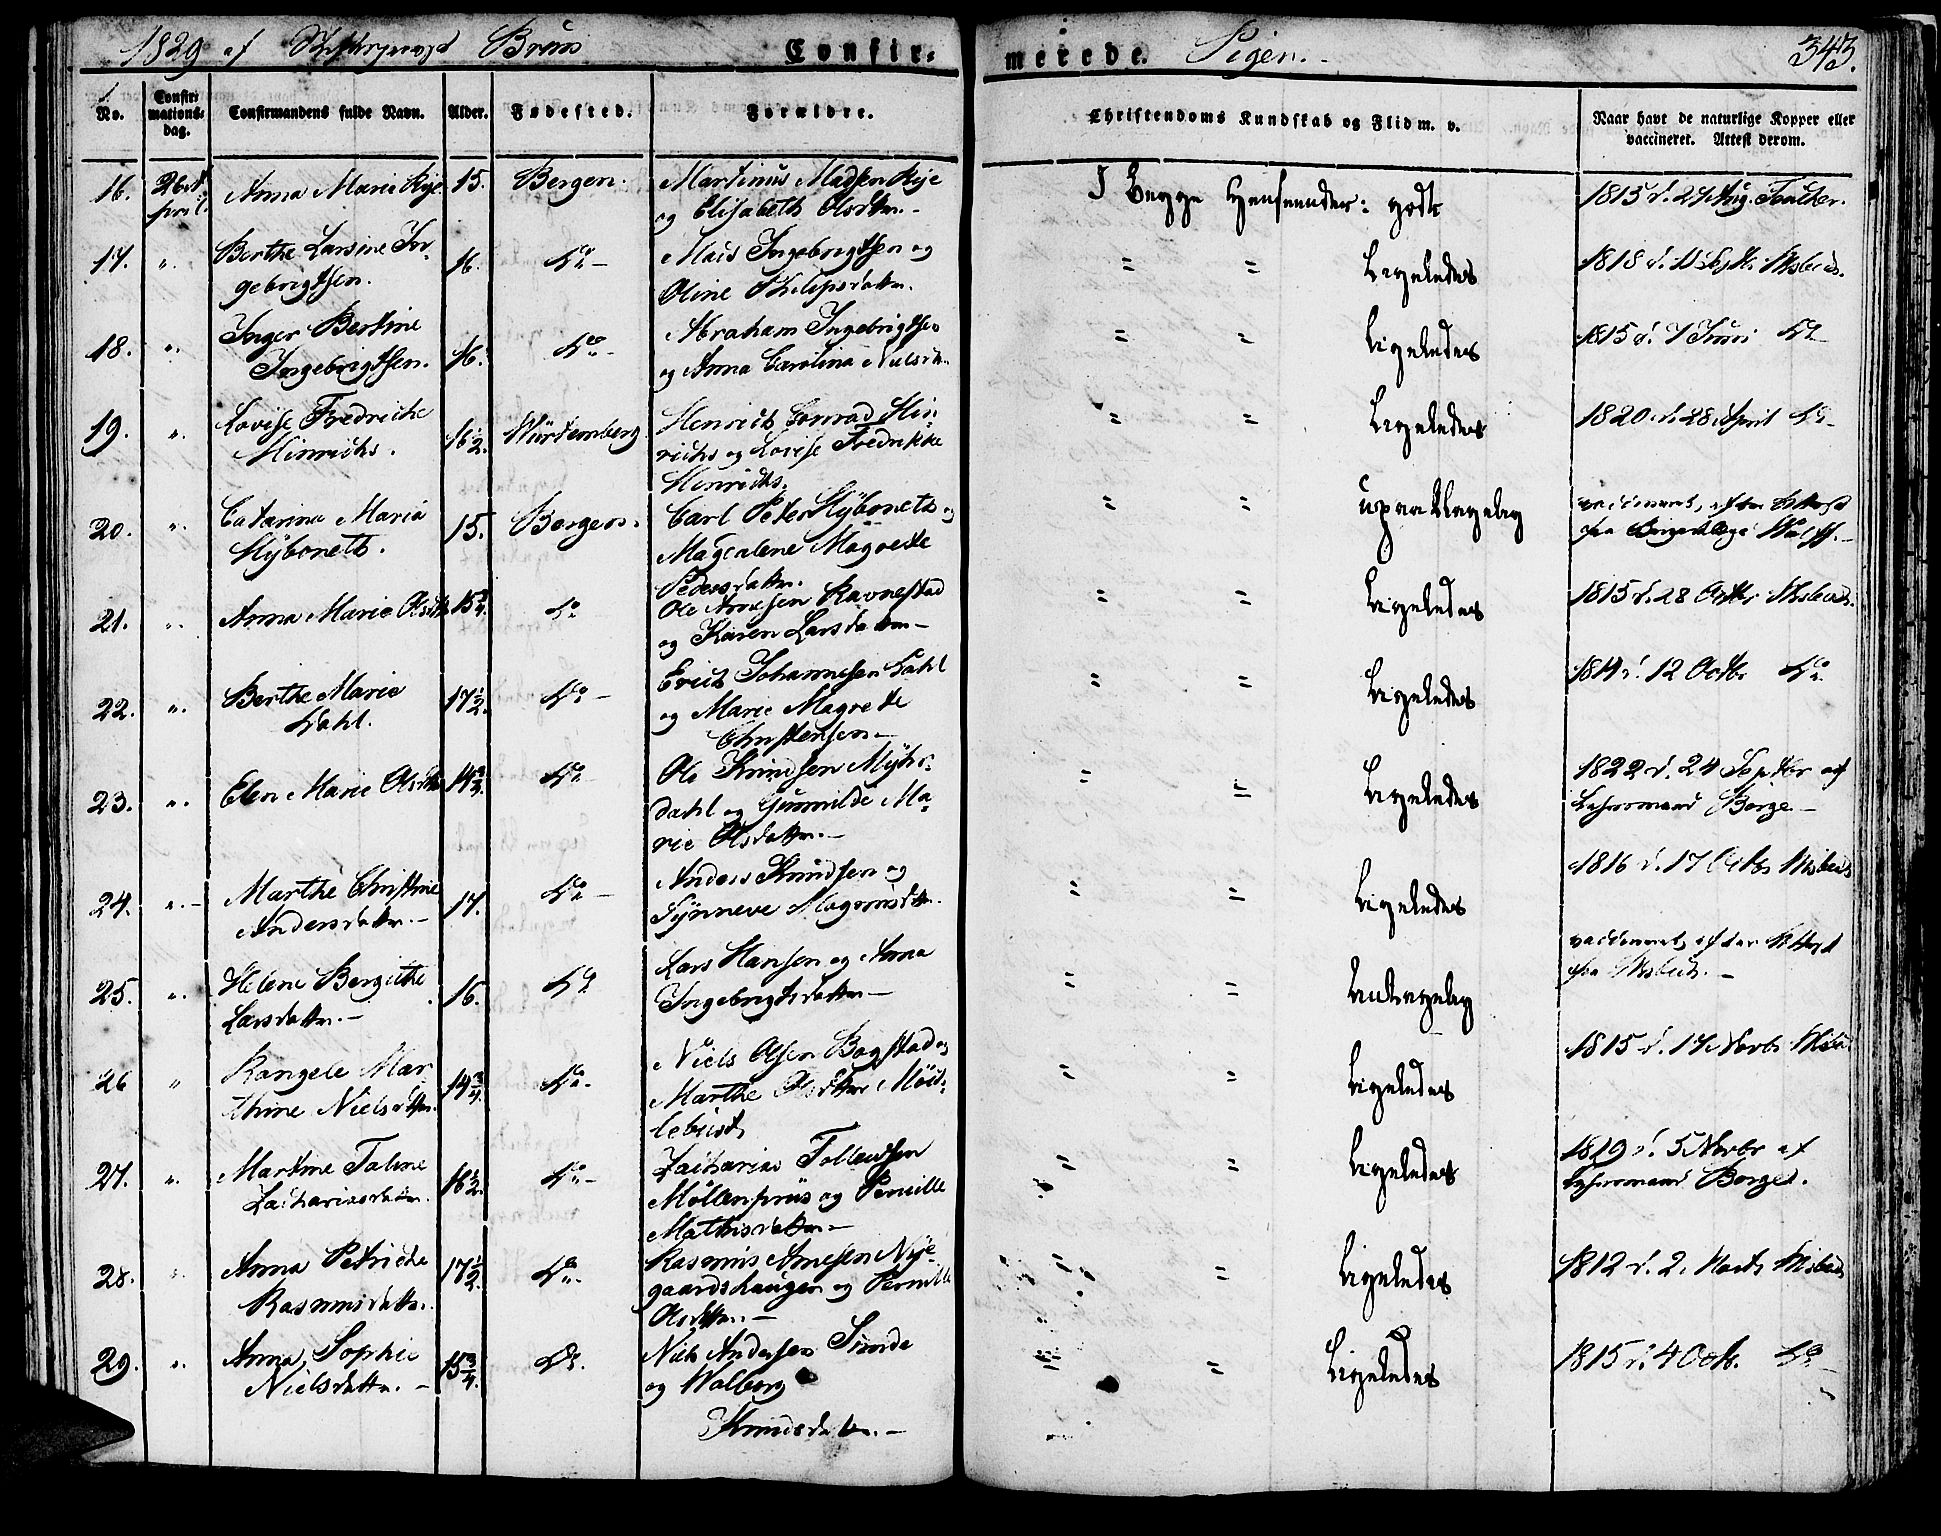 1829 af Bruns Confirmerede Piger. 343.
No. Confirmationsdag. Confirmandens fulde Navn. Alder. Fødested. Forældre. Christendoms Kundskab og Flid m. v. Naar havt de naturlige Kopper eller vaccineret. Attest derom.
16. 26 April Anna Marie Rye 15. Bergen. Martinus Madsen Rye
og Elisabeth Olsdttr. I Begge Henseender: godt 1815 d. 27 Aug.
17. ". Berthe Larsine In-
gebrigtsen. 16. Do Mads Ingebrigtsen og
Oline Philipsdattr. " " Ligeledes 1818 d.
18. ". Inger Bertine
Ingebrigtsen. 16. Do Abraham Ingebrigtsen
og Anna Carolina Nielsdtr. " " Ligeledes 1815 d. 7 Juni Do
19. ". Lovise Fredriche
Hinrichs. 16½. Würtemberg. Henrich Conrad Hin-
richs og Lovise Fredrikke
Henrichs. " " Ligeledes 1820 d. 28 April Do
20. ". Catarina Maria
Hyboneth. 15. Bergen. Carl Peter Hyboneth og
Magdalene Magrete
Pedersdattr. " " vaccineret, efter Attest
fra
21. ". Anna Marie Olsdttr 15¾. Do Ole Arnesen Ravnestad
og Karen Larsdattr. " " Ligeledes 1815 d. 28 Octbr
22. ". Berthe Marie
Dahl. 17½. Do Erich Johannesen Dahl
og Marie Magrete
Christensen. " " Ligeledes 1814 d. 12 Octbr Do
23. ". Elen Marie Olsdttr 14¾. Do Ole Knudsen Myhr-
dahl og Gunnilde Ma-
rie Olsdattr. " " Ligeledes 1822 d. 24 Septbr af
Borge
24. ". Marthe Christine
Andersdattr. 17. Do Anders Knudsen og
Synneve Magnusdttr. " " Ligeledes 1816 d. 17 Octbr
25. ". Helene Bergithe
Larsdattr. 16. Do Lars Hansen og Anna
Ingebrigtsdattr. " " vaccineret, efter Attest
fra
26 " Rangele Mar-
thine Nielsdttr. 14¾. Do Niels Olsen Bogstad og
Marthe Olsdttr Møi-
lebust. " " Ligeledes 1815 d. 17 Novbr
27. ". Martine Taline
Zachariasdattr. 16½. Do Zacharias Tollewsen
Møllenpriis og Pernille
Mathisdattr. " " Ligeledes 1819 d. 5 Novbr af
Borge.
28. ". Anna Petriche
Rasmusdattr. 17½. Do Rasmus Arnesen Nye-
gaardshaugen og Pernille
Olsdattr. " Ligeledes 1812 d. 2. Marts
29. ". Anna Sophie
Nielsdattr. 15¾. Do Niels Andersen Sunde
og Walborg
Knudsdattr. " " Ligeledes 1815 d. 4 Octb. Do